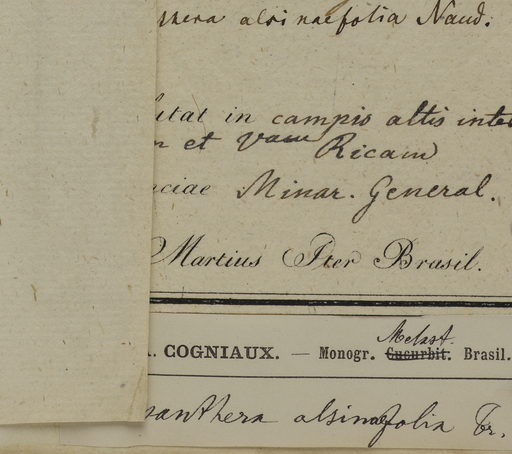 thera alsinaefolia Naud.
itat in campis altis inter
n et Vam Ricam
nciae Minar. General.
Martius Iter Brasil.
Melast.
. COGNIAUX. — Monogr. Cucurbit. Brasil.
santhera alsinaefolia Tr.